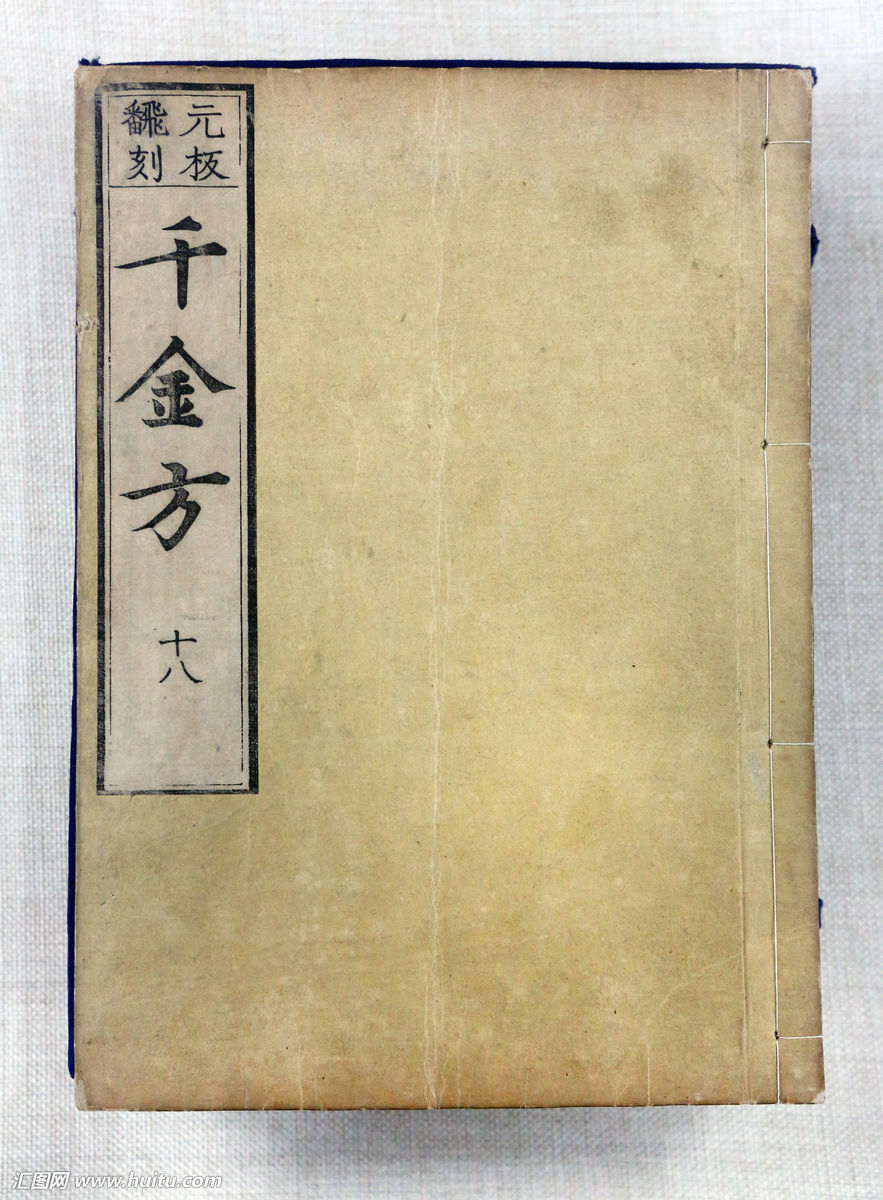 元板
飜刻
千金方
十八
汇图网 www.huitu.com